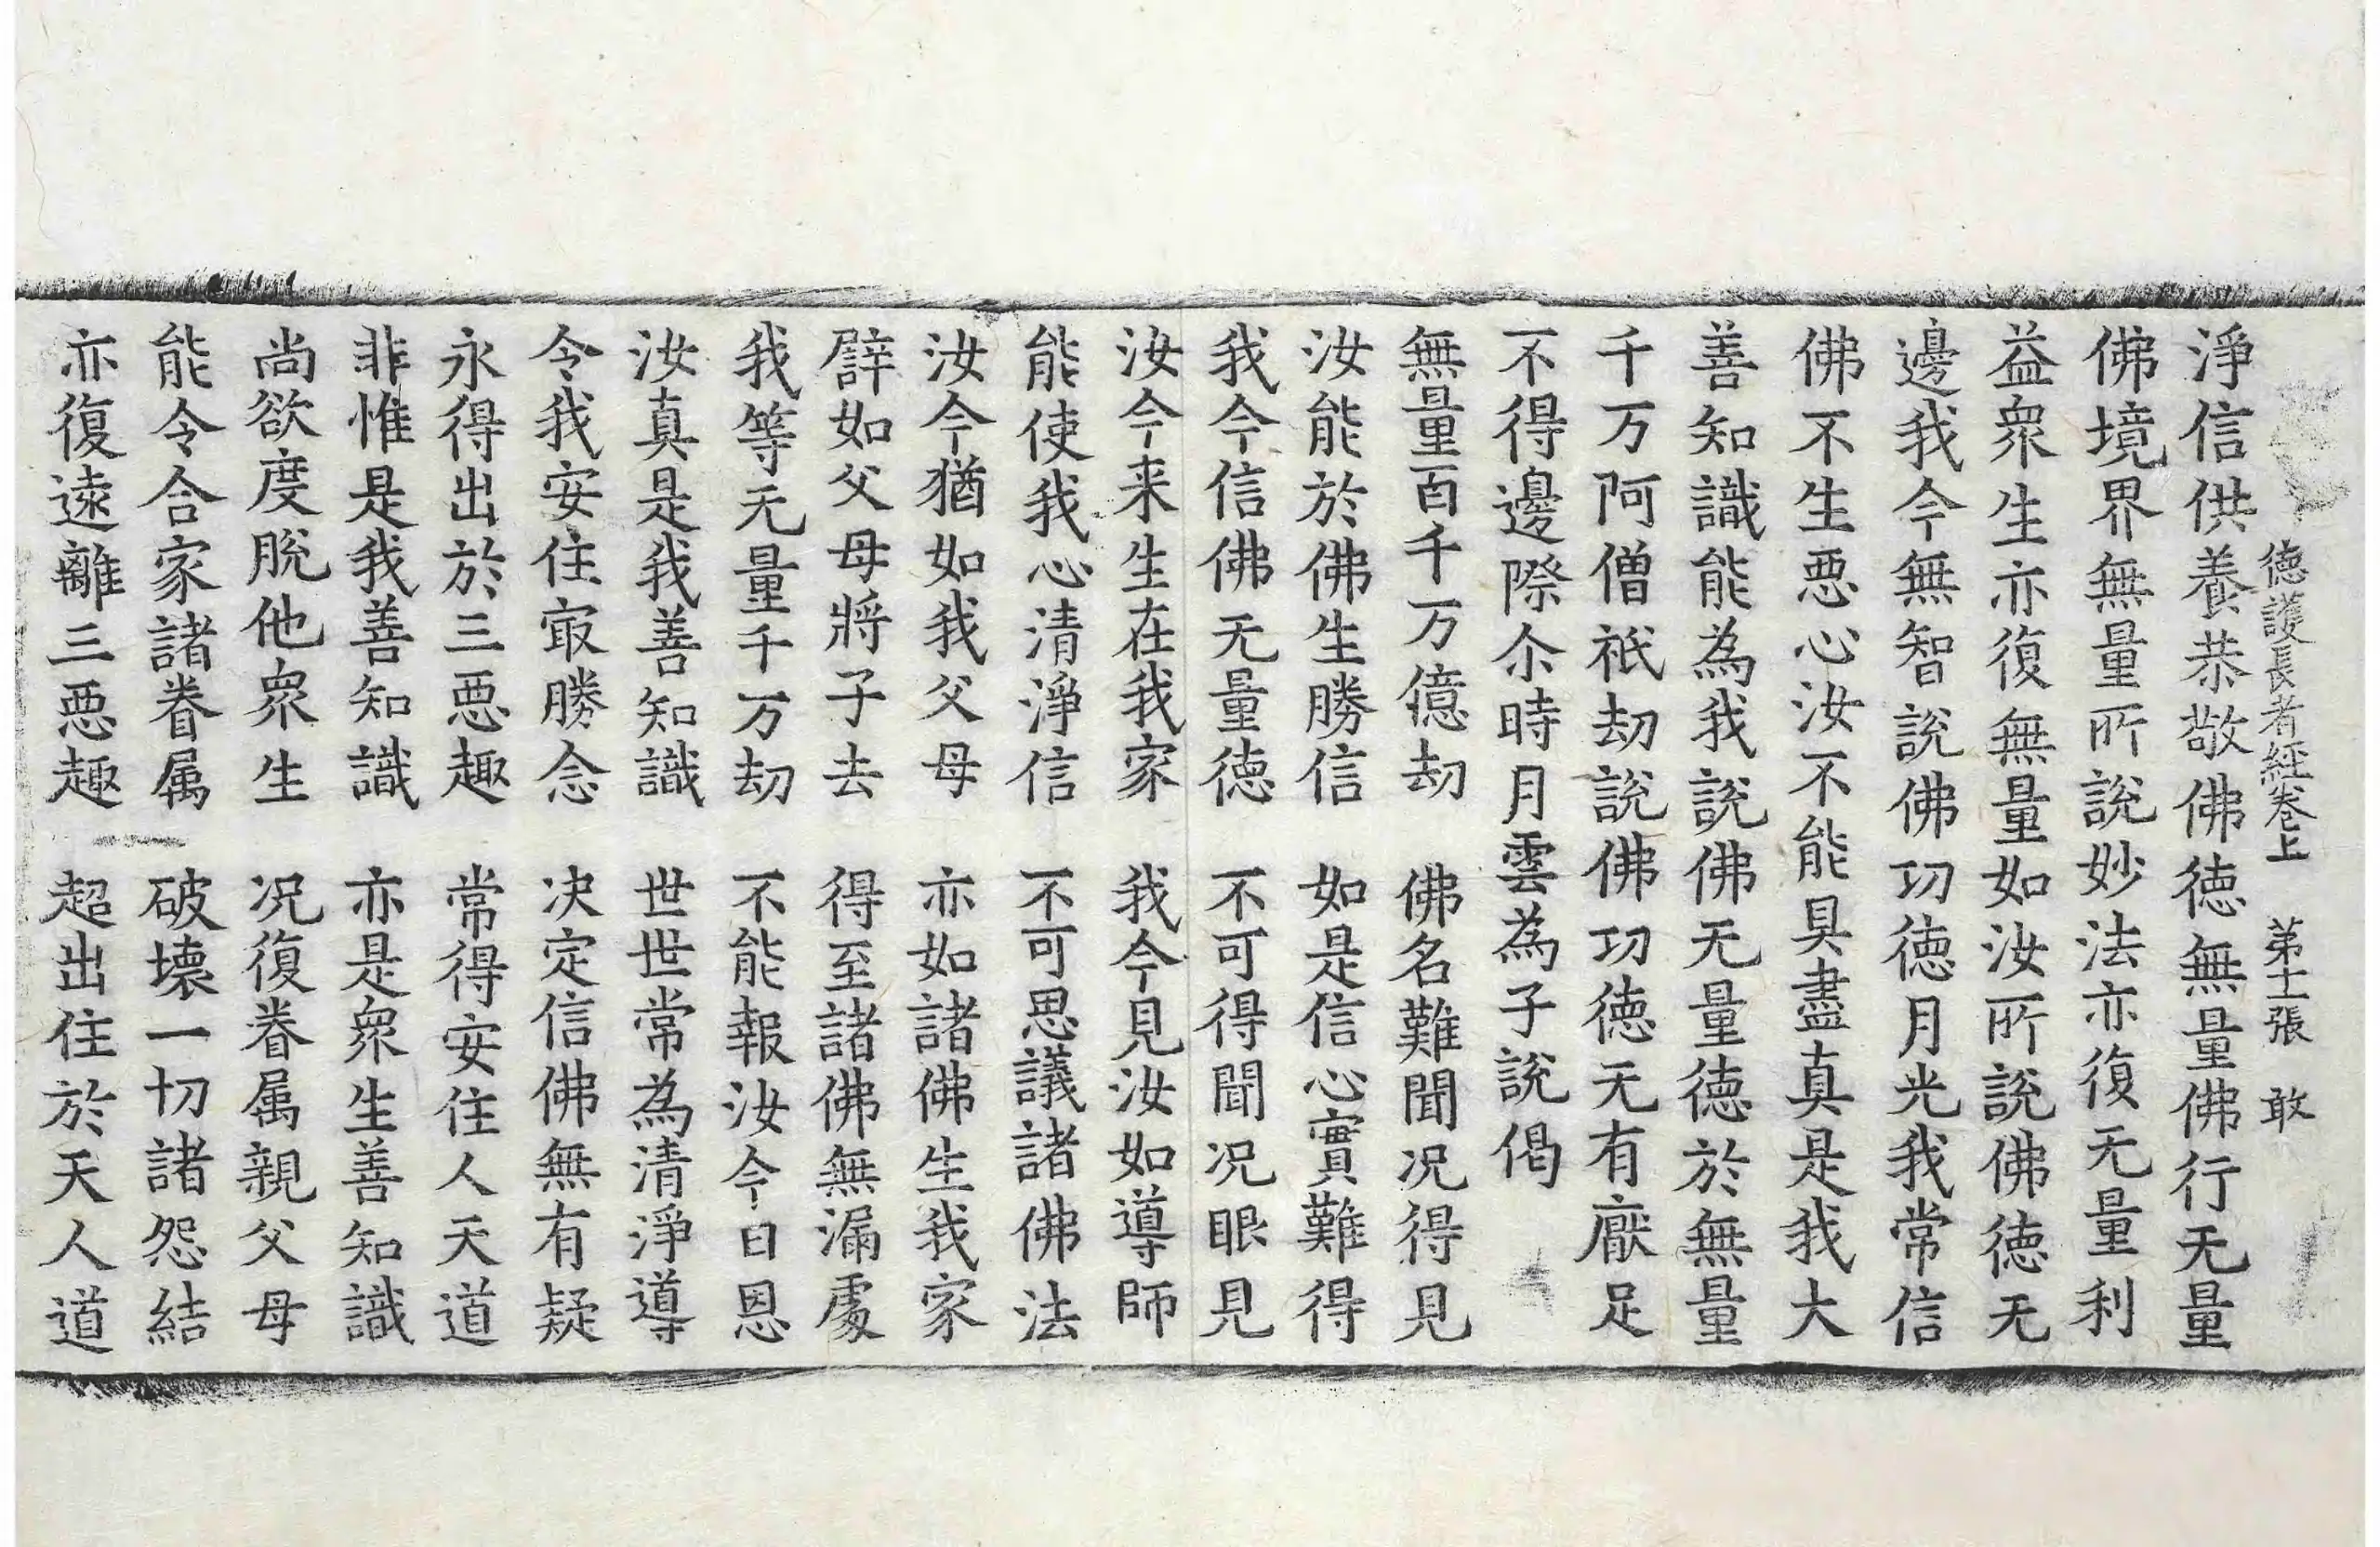 德護長者經卷上　第十二張　敢
淨信供養恭敬佛德無量佛行无量
佛境界無量所說妙法亦復无量利
益衆生亦復無量如汝所說佛德无
邊我今無智說佛功德月光我常信
佛不生惡心汝不能具盡真是我大
善知識能為我說佛无量德於無量
千万阿僧祇劫說佛功德无有厭足
不得邊際尒時月雲為子說偈
無量百千万億劫　佛名難聞况得見
汝能於佛生勝信　如是信心實難得
我今信佛无量德　不可得聞况眼見
汝今来生在我家　我今見汝如導師
能使我心清淨信　不可思議諸佛法
汝今猶如我父母　亦如諸佛生我家
譬如父母將子去　得至諸佛無漏處
我等无量千万劫　不能報汝今日恩
汝真是我善知識　世世常為清淨導
令我安住冣勝念　决定信佛無有疑
永得出於三惡趣　常得安住人天道
非惟是我善知識　亦是衆生善知識
尚欲度脫他衆生　况復眷属親父母
能令合家諸眷属　破壞一切諸怨結
亦復遠離三惡趣　超出住於天人道